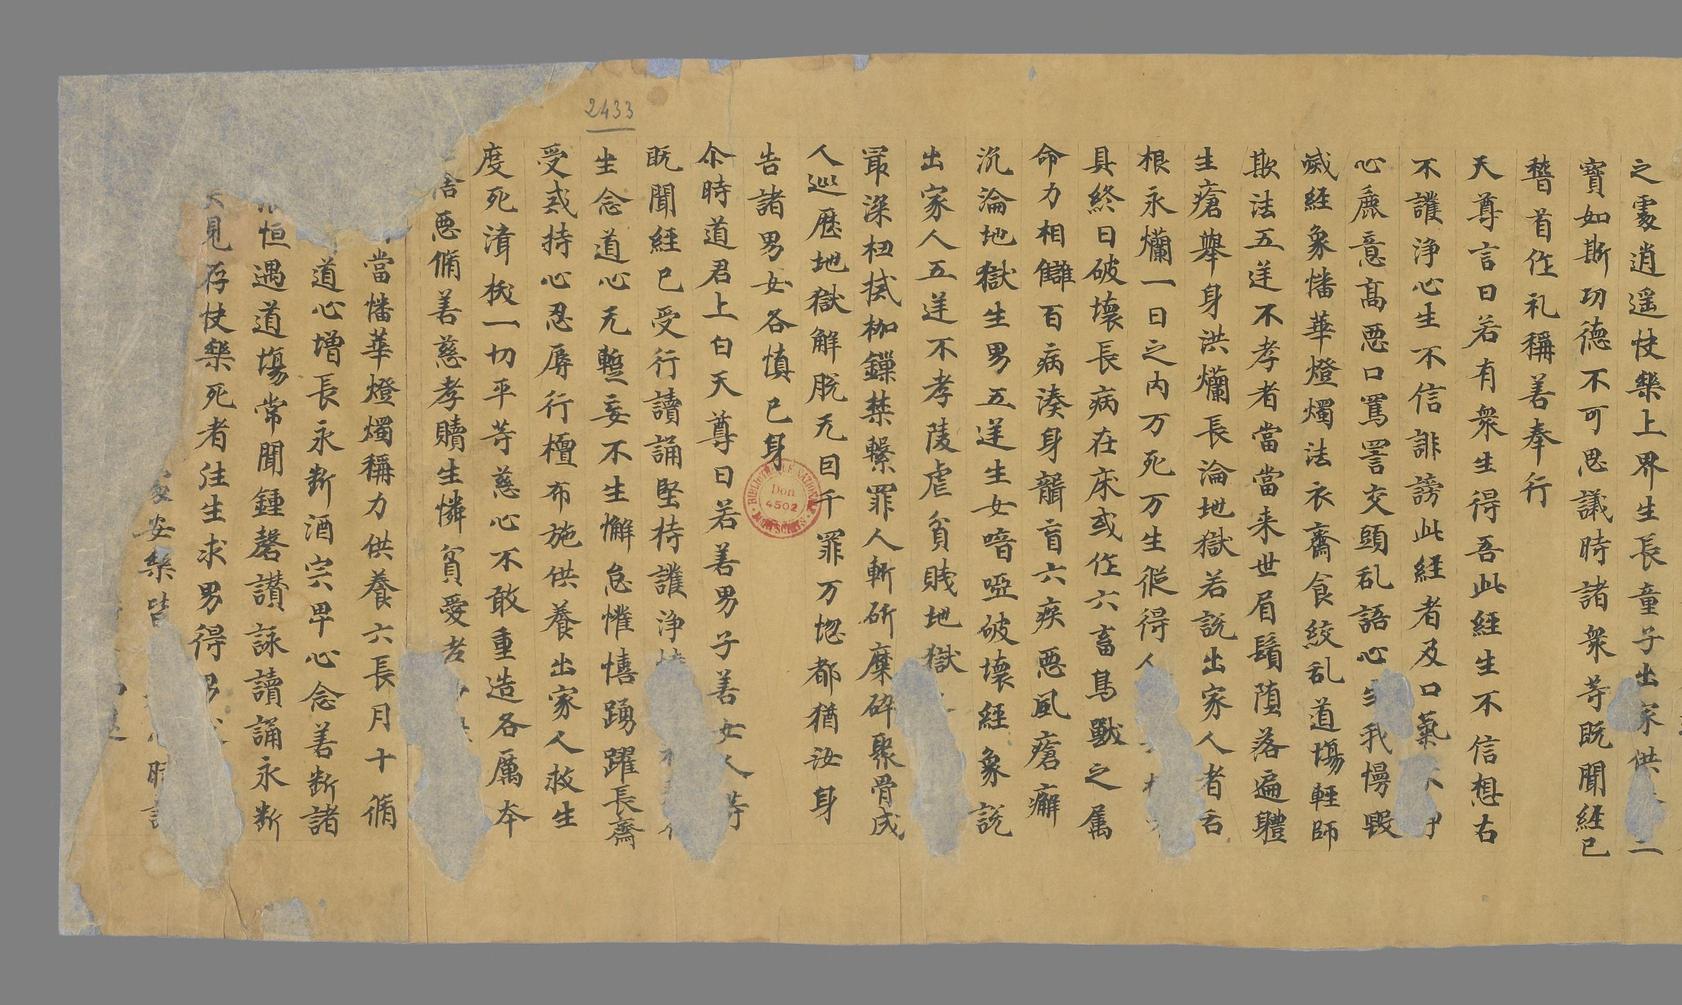 之處逍遥快樂上界生長童子出家供
寶如斯功德不可思議時諸衆等既聞經已
稽首作礼稱善奉行
天尊言曰若有衆生得吾此經生不信想右
不護浄心生不信誹謗此經者及口氣
心麁意髙惡口罵詈交頭乱語心 我慢毀
滅經象幡華燈燭法衣齋食絞乱道塲輕師
欺法五逆不孝者當當来世眉鬚堕落遍體
生瘡舉身洪爛長淪地獄若説出家人者舌
根永爛一日之内万死万生従得
具終日破壞長病在床或作六畜鳥獸之属
命力相讎百病湊身聾盲六疾惡風瘡癬
沉淪地獄生男五逆生女喑啞破壞經象説
出家人五逆不孝陵虐貧賎地獄
冣深杻拭枷鏁禁繋罪人斬斫糜碎聚骨成
人巡歴地獄解脱无曰千罪万惣都猶汝身
告諸男女各慎己身
尒時道君上白天尊曰若善男子善女人等
既聞經已受行讀誦堅持護浄
生念道心无蹔妄不生懈怠懽憘踴躍長齋
受或持心忍辱行檀布施供養出家人救生
度死漬栰一切平等慈心不敢重造各属本
捨惡脩善慈孝贖生憐貧愛老
當幡華燈燭稱力供養六長月十脩
道心増長永断酒宍卑心念善断諸
恒遇道塲常聞鍾磬讃詠讀誦永断
見存快樂死者往生求男得男
安樂
2433
BIBLIOTHÈQUE NATIONALE
Don
4502
MANUSCRITS